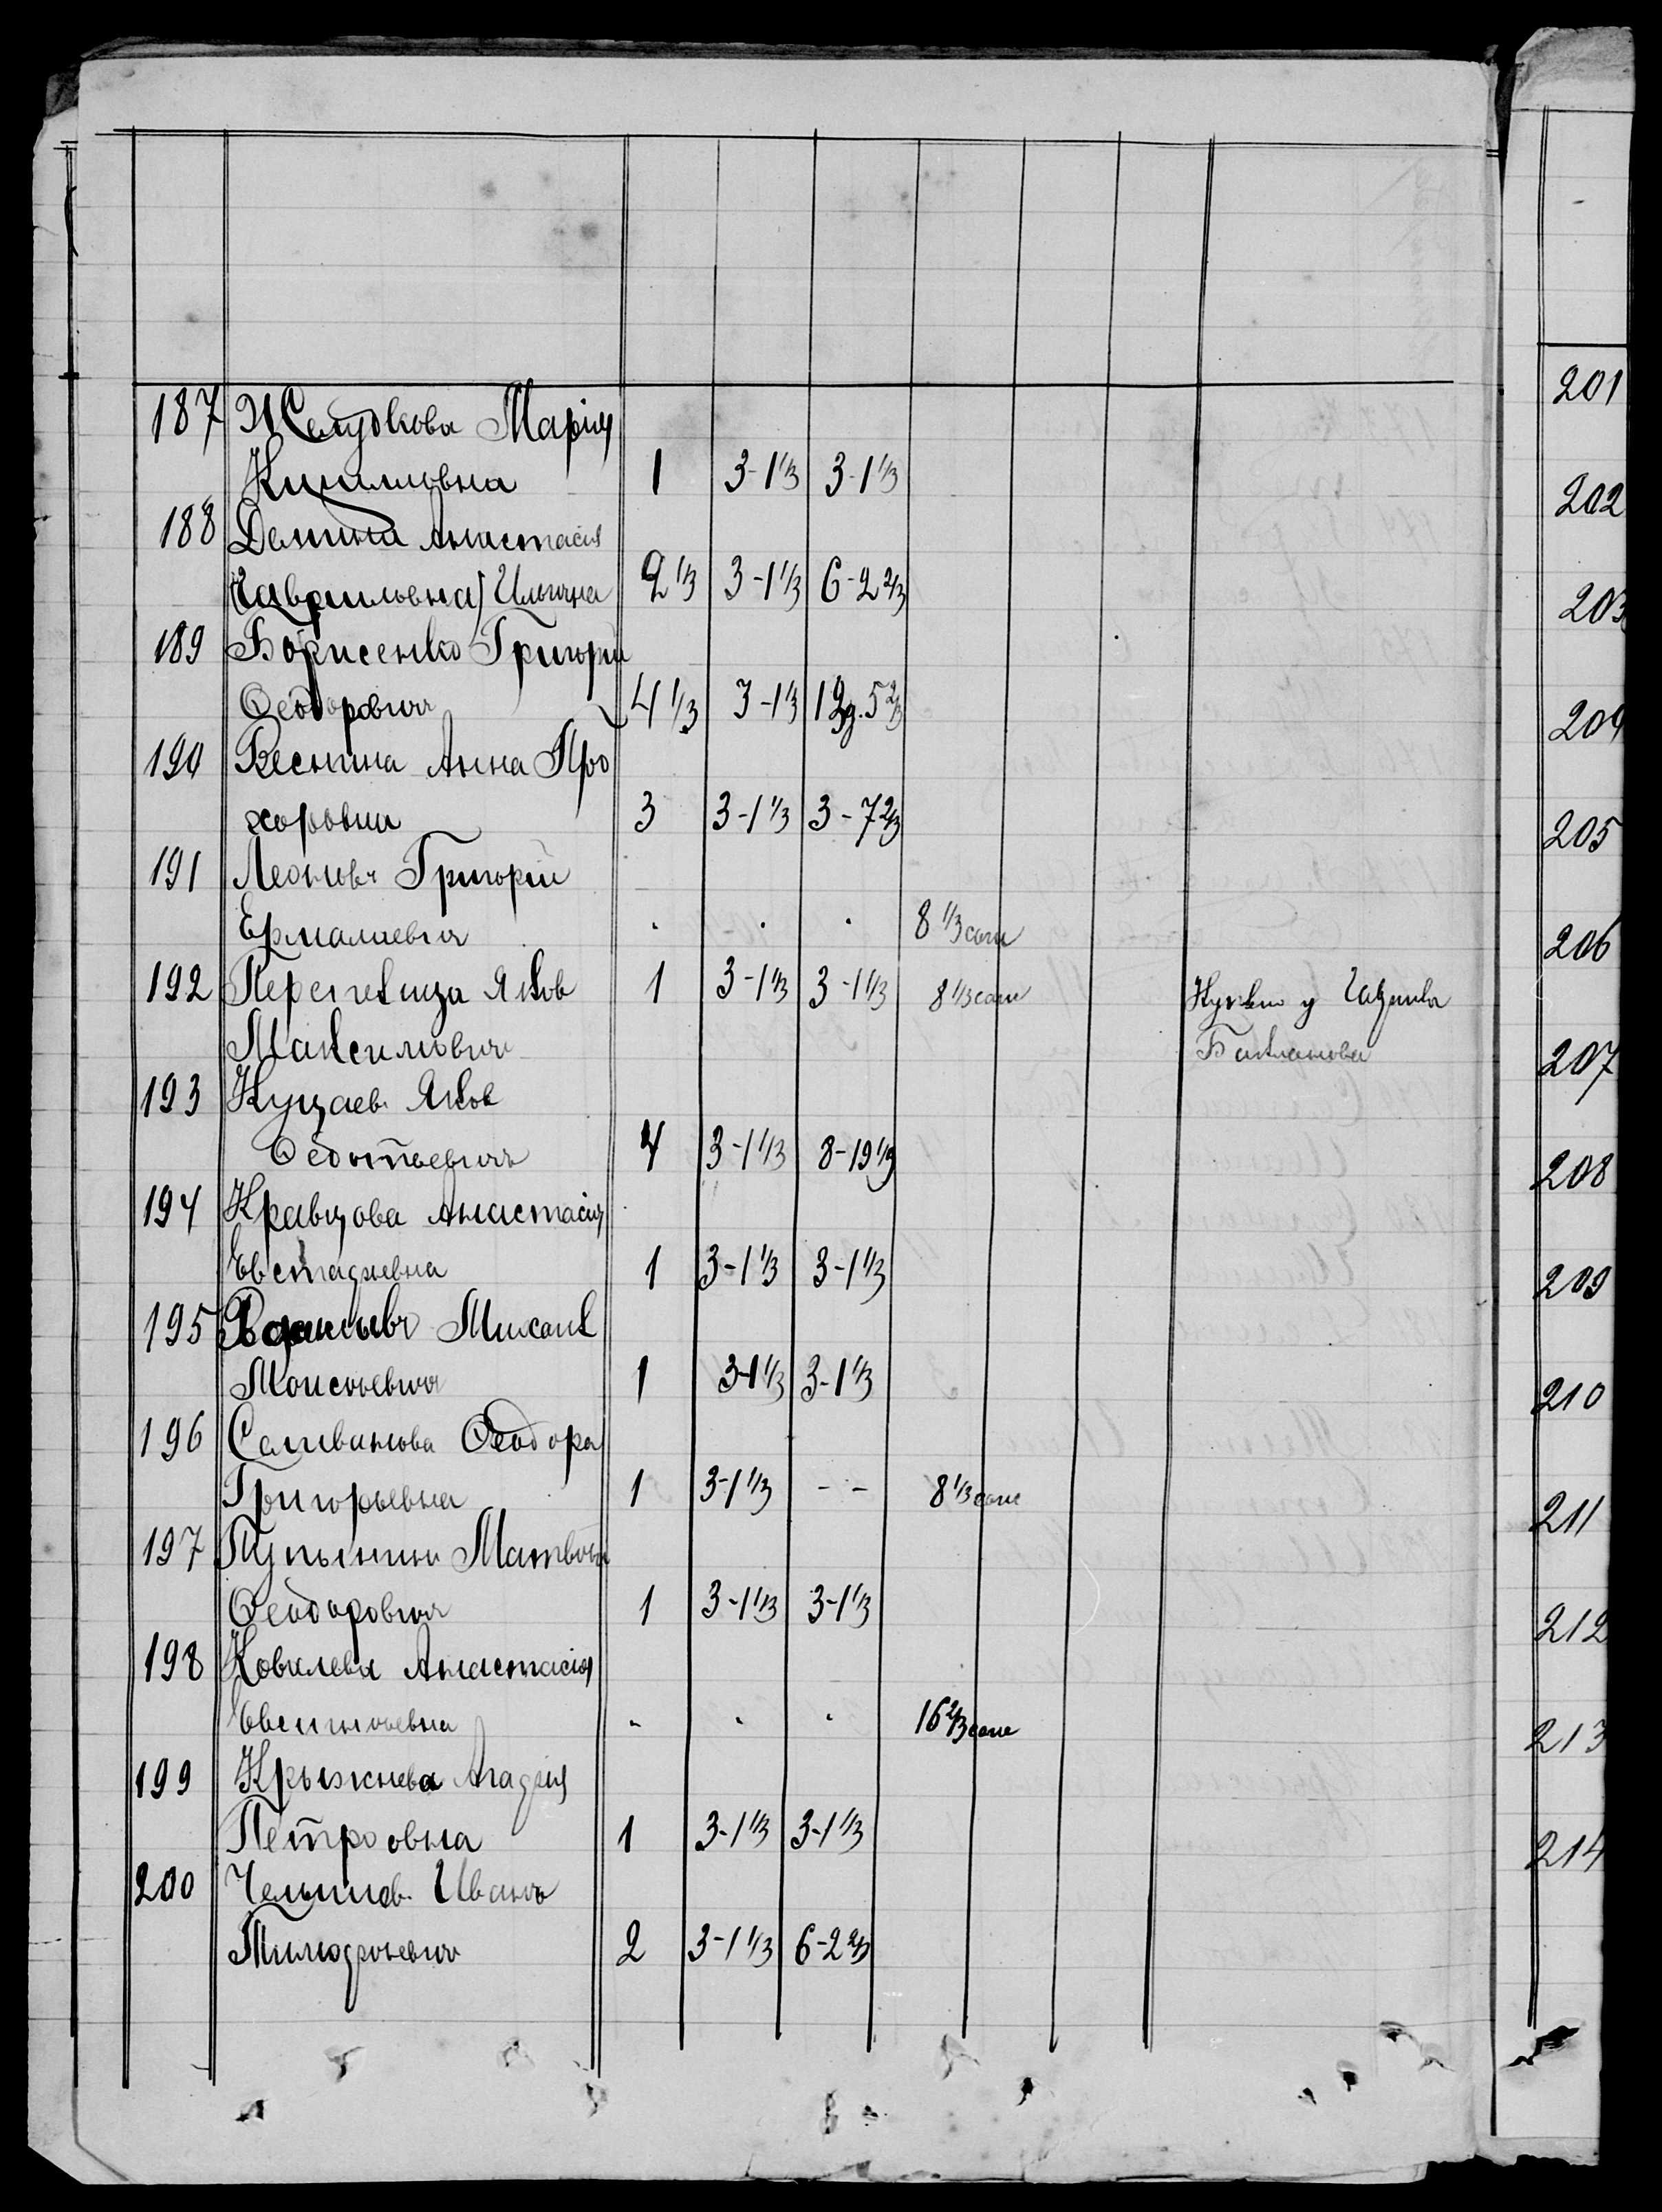 187 Желудкова Марія
Кириловна 1 3-1⅓ 3-1⅓
188 Демина Анастасія
Гавриловна) Ильина 2⅓ 3-1⅓ 6-2⅔
189 Борисенко Григорій
Ѳеодоровичъ 4⅓ 3-1⅓ 12д.5⅔
190 Веснина Анна Про
хоровна 3 3-1⅓ 3-7⅔
191 Леоновъ Григорій
Ермалаевичъ . . . 8⅓ саж
192 Перепелица Яков 1 3-1⅓ 3-1⅓ 8⅓ саж у
Максимовичъ Бакланова
193 Куцаев Яков
Ѳедотьевичъ 4 3-1⅓ 8-19⅓
194 Кравцова Анастасія
Евстафьевна 1 3-1⅓ 3-1⅓
195 Михаил
Моисеевичъ 1 3-1⅓ 3-1⅓
196 Селиванова Ѳеодора
Григорьевна 1 3-1⅓ - - 8⅓ саж
197 Пупынин Матвѣй
Ѳеодоровичъ 1 3-1⅓ 3-1⅓
198 Ковалева Анастасія
Евсигнѣевна . . . 16⅔ саж
199 Крыжнева Агафія
Петровна 1 3-1⅓ 3-1⅓
200 Иванъ
Тимофѣевичъ 2 3-1⅓ 6-2⅔
201
202
203
204
205
206
207
208
209
210
211
212
213
214